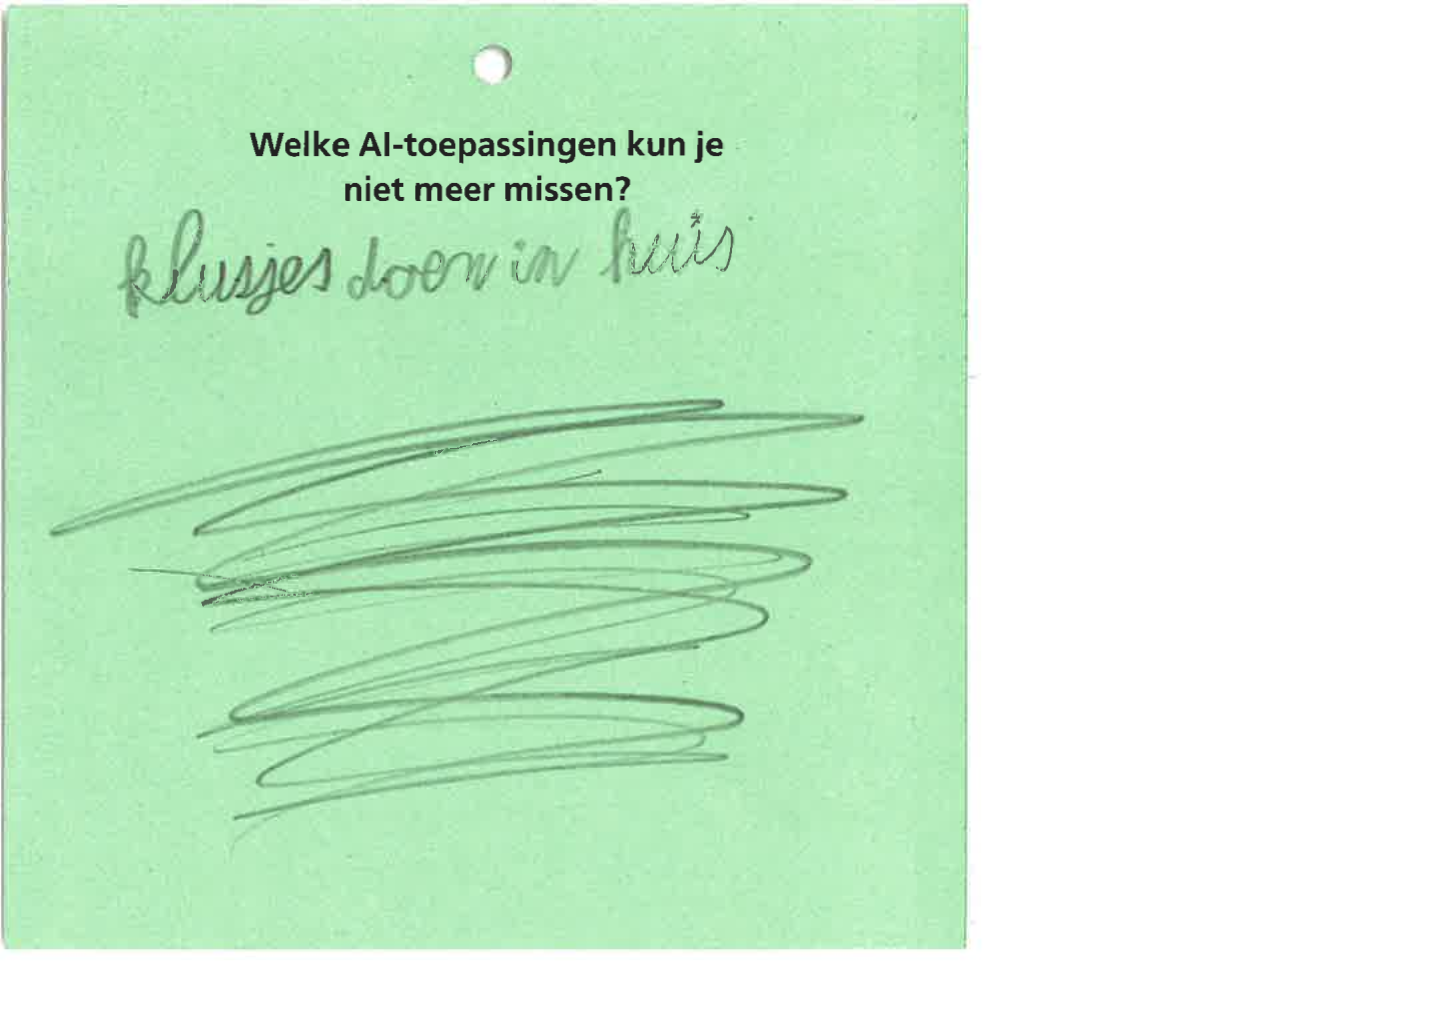 Welke AI-toepassingen kun je
niet meer missen?
klusjes doen in huis